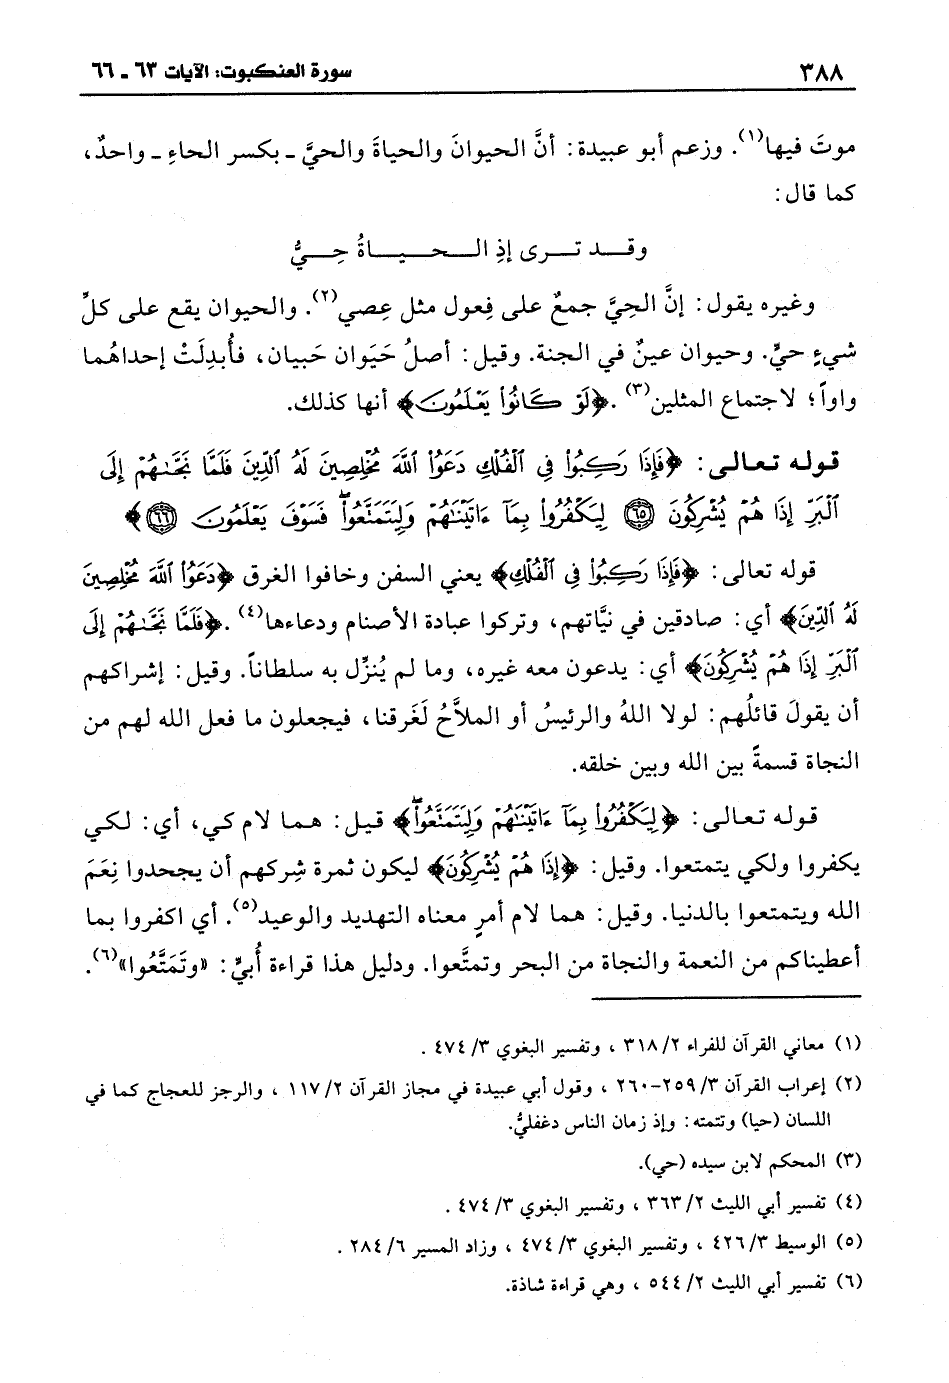 ٣٨٨ سورة العنكبوت: الآيات ٦٣ ـ ٦٦
موتَ فيها(١). وزعم أبو عبيدة: أنَّ الحيوانَ والحياةَ والحيَّ ـ بكسر الحاءِ ـ واحدٌ،
كما قال:
وقـــد تـــرى إذِ الـــحـــيـــاةُ حِـــيُّ
وغيره يقول: إنَّ الحِيَّ جمعٌ على فِعول مثل عِصي(٢). والحيوان يقع على كلِّ
شيءٍ حيٍّ. وحيوان عينٌ في الجنة. وقيل: أصلُ حَيَوان حَييان، فأُبدِلَتْ إحداهُما
واواً؛ لاجتماع المثلين(٣). ﴿لَوْ كَانُوا۟ يَعْلَمُونَ﴾ أنها كذلك.
قوله تعالى: ﴿فَإِذَا رَكِبُوا۟ فِى ٱلْفُلْكِ دَعَوُا۟ ٱللَّهَ مُخْلِصِينَ لَهُ ٱلدِّينَ فَلَمَّا نَجَّىٰهُمْ إِلَى
ٱلْبَرِّ إِذَا هُمْ يُشْرِكُونَ ۝٦٥ لِيَكْفُرُوا۟ بِمَآ ءَاتَيْنَـٰهُمْ وَلِيَتَمَتَّعُوا۟ ۖ فَسَوْفَ يَعْلَمُونَ ۝٦٦﴾
قوله تعالى: ﴿فَإِذَا رَكِبُوا۟ فِى ٱلْفُلْكِ﴾ يعني السفن وخافوا الغرق ﴿دَعَوُا۟ ٱللَّهَ مُخْلِصِينَ
لَهُ ٱلدِّينَ﴾ أي: صادقين في نيَّاتهم، وتركوا عبادة الأصنام ودعاءها(٤). ﴿فَلَمَّا نَجَّىٰهُمْ إِلَى
ٱلْبَرِّ إِذَا هُمْ يُشْرِكُونَ﴾ أي: يدعون معه غيره، وما لم يُنزِّل به سلطاناً. وقيل: إشراكهم
أن يقولَ قائلُهم: لولا اللهُ والرئيسُ أو الملاَّحُ لَغَرقنا، فيجعلون ما فعل الله لهم من
النجاة قسمةً بين الله وبين خلقه.
قوله تعالى: ﴿لِيَكْفُرُوا۟ بِمَآ ءَاتَيْنَـٰهُمْ وَلِيَتَمَتَّعُوا۟ ۖ﴾ قيل: هما لام كي، أي: لكي
يكفروا ولكي يتمتعوا. وقيل: ﴿إِذَا هُمْ يُشْرِكُونَ﴾ ليكون ثمرة شِركهم أن يجحدوا نِعَمَ
الله ويتمتعوا بالدنيا. وقيل: هما لام أمرٍ معناه التهديد والوعيد(٥). أي اكفروا بما
أعطيناكم من النعمة والنجاة من البحر وتمتَّعوا. ودليل هذا قراءة أُبيٍّ: «وتَمَتَّعُوا»(٦).
(١) معاني القرآن للفراء ٢/ ٣١٨ ، وتفسير البغوي ٣/ ٤٧٤ .
(٢) إعراب القرآن ٣/ ٢٥٩-٢٦٠ ، وقول أبي عبيدة في مجاز القرآن ٢/ ١١٧ ، والرجز للعجاج كما في
اللسان (حيا) وتتمته: وإذ زمان الناس دغفليُّ.
(٣) المحكم لابن سيده (حي).
(٤) تفسير أبي الليث ٢/ ٣٦٣ ، وتفسير البغوي ٣/ ٤٧٤ .
(٥) الوسيط ٣/ ٤٢٦ ، وتفسير البغوي ٣/ ٤٧٤ ، وزاد المسير ٦/ ٢٨٤ .
(٦) تفسير أبي الليث ٢/ ٥٤٤ ، وهي قراءة شاذة.